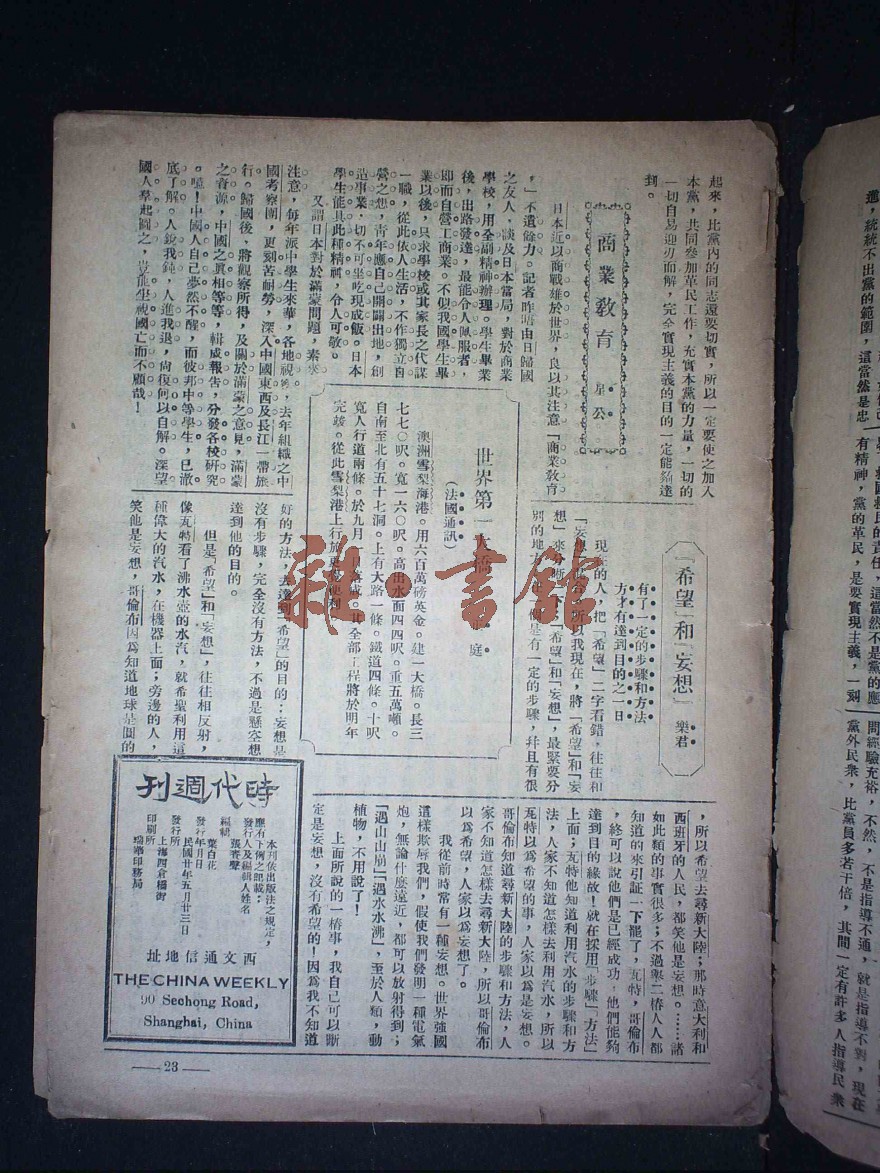 起來，比黨內的同志還要切實，所以一定要使之加入
本黨，共同參加革民工作，充實本黨的力量，一切的
一切自易迎刃而解，完全實現主義的目的一定能夠達
到。
商業教育
星公
日本近以商戰雄於世界，良以其注意「商業教育
，」不遺餘力。記者昨晤由日歸國
之友人，談及日本當局，對於商業
學校，用全副精神辦理。學生畢業
後，出路發達，最能令人佩服者，
即而自營工商業。不似我國學生畢
業以後，只求學校或其家長之代謀
一職，從此依人生活，不作獨立自
營之想，青年應自己開闢出地，創
造事業，切不可坐吃現成飯。日本
學生能具此種精神，令人可敬。
又謂日本對於滿蒙問題，素來
注意，每年派中學生來華，各地視察，去年組織之中
國考察團，更刻苦耐勞，深入中國東西及長江一帶旅
行。歸國後、將觀察所得，及關於滿蒙之意見，滿蒙
之資源，中國之眞相等等，輯成報告，分發各校研究
。噫！中國人自己夢然不醒，而彼邦中等學生，已澈
底了解。人銳我鈍，人進我退，尙復何以自解。深望
國人羣起圖之，豈能坐視國亡而不顧哉！
世界第一大橋
庭
（法國通訊）
澳洲雪梨海港。用六百萬磅英金。建一大橋。長三
七七〇呎。寬一六〇呎。高出水面四四呎。重五萬噸。
自南至北有五十七洞。上有大路一條。鐵道四條。十呎
寬人行道兩條。於九月
完竣。從此雪梨港上行旅更爲便利
「希望」和「妄想」
樂君
有了一定的步驟和方法
方才有達到目的之一日
現在的人，把「希望」二字看錯，往往和
「妄想」混合。所以我現在，將「希望」和「妄
想」來分晰一下；「希望」和「妄想」，最緊要分
別的地方在；他是有一定的步驟，幷且有很
好的方法，去達到「希望」的目的；妄想是
沒有步驟，完全沒有方法，不過是懸空想
達到他的目的。
但是「希望」和「妄想」，往往相反射，
像瓦特看了沸水壺的水汽，就希望利用這
種偉大的汽水，在機器上面；旁邊的人，
笑他是妄想，哥倫布因爲知道地球是圓的
，所以希望去尋新大陸；那時意大利和
西班牙的人民，都笑他是妄想。……諸
如此類的事實很多；不過舉二樁人人都
知道的來引証一下罷了，瓦特，哥倫布
，終可以說他們是已經成功，他們能夠
達到目的緣故！就在採用「步驟」「方法」
上面；瓦特他知道利用汽水的步驟和方
法，人家不知道怎樣去利用汽水，所以
瓦特以爲希望的事，人家以爲是妄想。
哥倫布知道尋新大陸的步驟和方法，人
家不知道怎樣去尋新大陸，所以哥倫布
以爲希望，人家以爲妄想了。
我從前時常有一種妄想。世界強國
這樣欺辱我們，假使我們發明一種電氣
炮，無論什麼遠近，都可以放射得到；
「遇山山崩」「遇水水沸」，至於人類，動
植物，不用說了！
上面所說的一樁事，我自己可以斷
定是妄想，沒有希望的！因爲我不知道
時代週刊
本刊依出版法之規定，
應有下何之記載：
發行人及編輯人姓名
張書聲
編輯
葉白花
發行年月日
民國廿年五月廿三日
發行所
上海四倉橋街
印刷所
瑞華印務局
西文通信地址
THE·CHINA WEEKLY
90 Sechong Road,
Shanghai, China
—— 23 ——
雜·書館
有精神，黨的革民，是要實現主義，一刻
問經驗充裕，不然，不是指導不通，就是指導不對，現在
黨外民衆，比黨員多若干倍，其間一定有許多人指導民衆